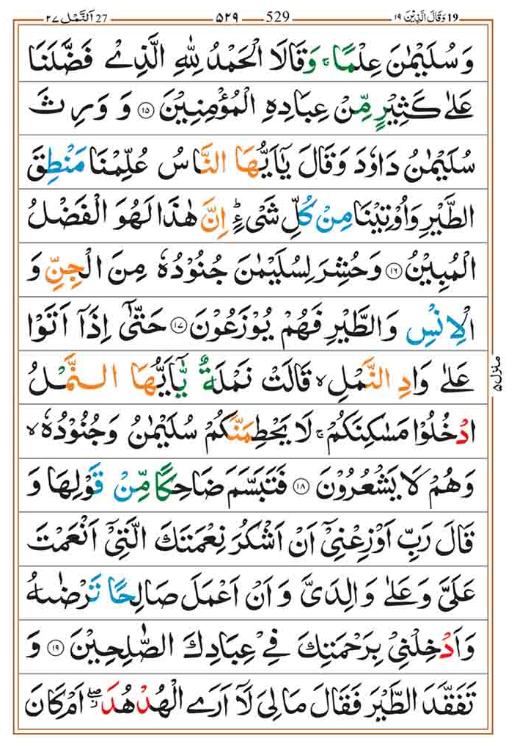 19 وَقَالَ الَّذِيْنَ ١٩ 529 ٥٢٩ 27 اَلنَّمْل ٢٧
وَسُلَيْمٰنَ عِلْمًا ۚ وَقَالَا الْحَمْدُ لِلّٰهِ الَّذِيْ فَضَّلَنَا
عَلٰى كَثِيْرٍ مِّنْ عِبَادِهِ الْمُؤْمِنِيْنَ ۝١٥ وَ وَرِثَ
سُلَيْمٰنُ دَاوٗدَ وَقَالَ يٰۤاَيُّهَا النَّاسُ عُلِّمْنَا مَنْطِقَ
الطَّيْرِ وَاُوْتِيْنَا مِنْ كُلِّ شَيْءٍ ؕ اِنَّ هٰذَا لَهُوَ الْفَضْلُ
الْمُبِيْنُ ۝١٦ وَحُشِرَ لِسُلَيْمٰنَ جُنُوْدُهٗ مِنَ الْجِنِّ وَ
الْاِنْسِ وَالطَّيْرِ فَهُمْ يُوْزَعُوْنَ ۝١٧ حَتّٰۤى اِذَاۤ اَتَوْا
عَلٰى وَادِ النَّمْلِ ۙ قَالَتْ نَمْلَةٌ يّٰۤاَيُّهَا النَّمْلُ
ادْخُلُوْا مَسٰكِنَكُمْ ۚ لَا يَحْطِمَنَّكُمْ سُلَيْمٰنُ وَجُنُوْدُهٗ ۙ
وَهُمْ لَا يَشْعُرُوْنَ ۝١٨ فَتَبَسَّمَ ضَاحِكًا مِّنْ قَوْلِهَا وَ
قَالَ رَبِّ اَوْزِعْنِيْۤ اَنْ اَشْكُرَ نِعْمَتَكَ الَّتِيْۤ اَنْعَمْتَ
عَلَيَّ وَعَلٰى وَالِدَيَّ وَاَنْ اَعْمَلَ صَالِحًا تَرْضٰىهُ
وَاَدْخِلْنِيْ بِرَحْمَتِكَ فِيْ عِبَادِكَ الصّٰلِحِيْنَ ۝١٩ وَ
تَفَقَّدَ الطَّيْرَ فَقَالَ مَا لِيَ لَاۤ اَرَى الْهُدْهُدَ ۖ اَمْ كَانَ
منزل ٥